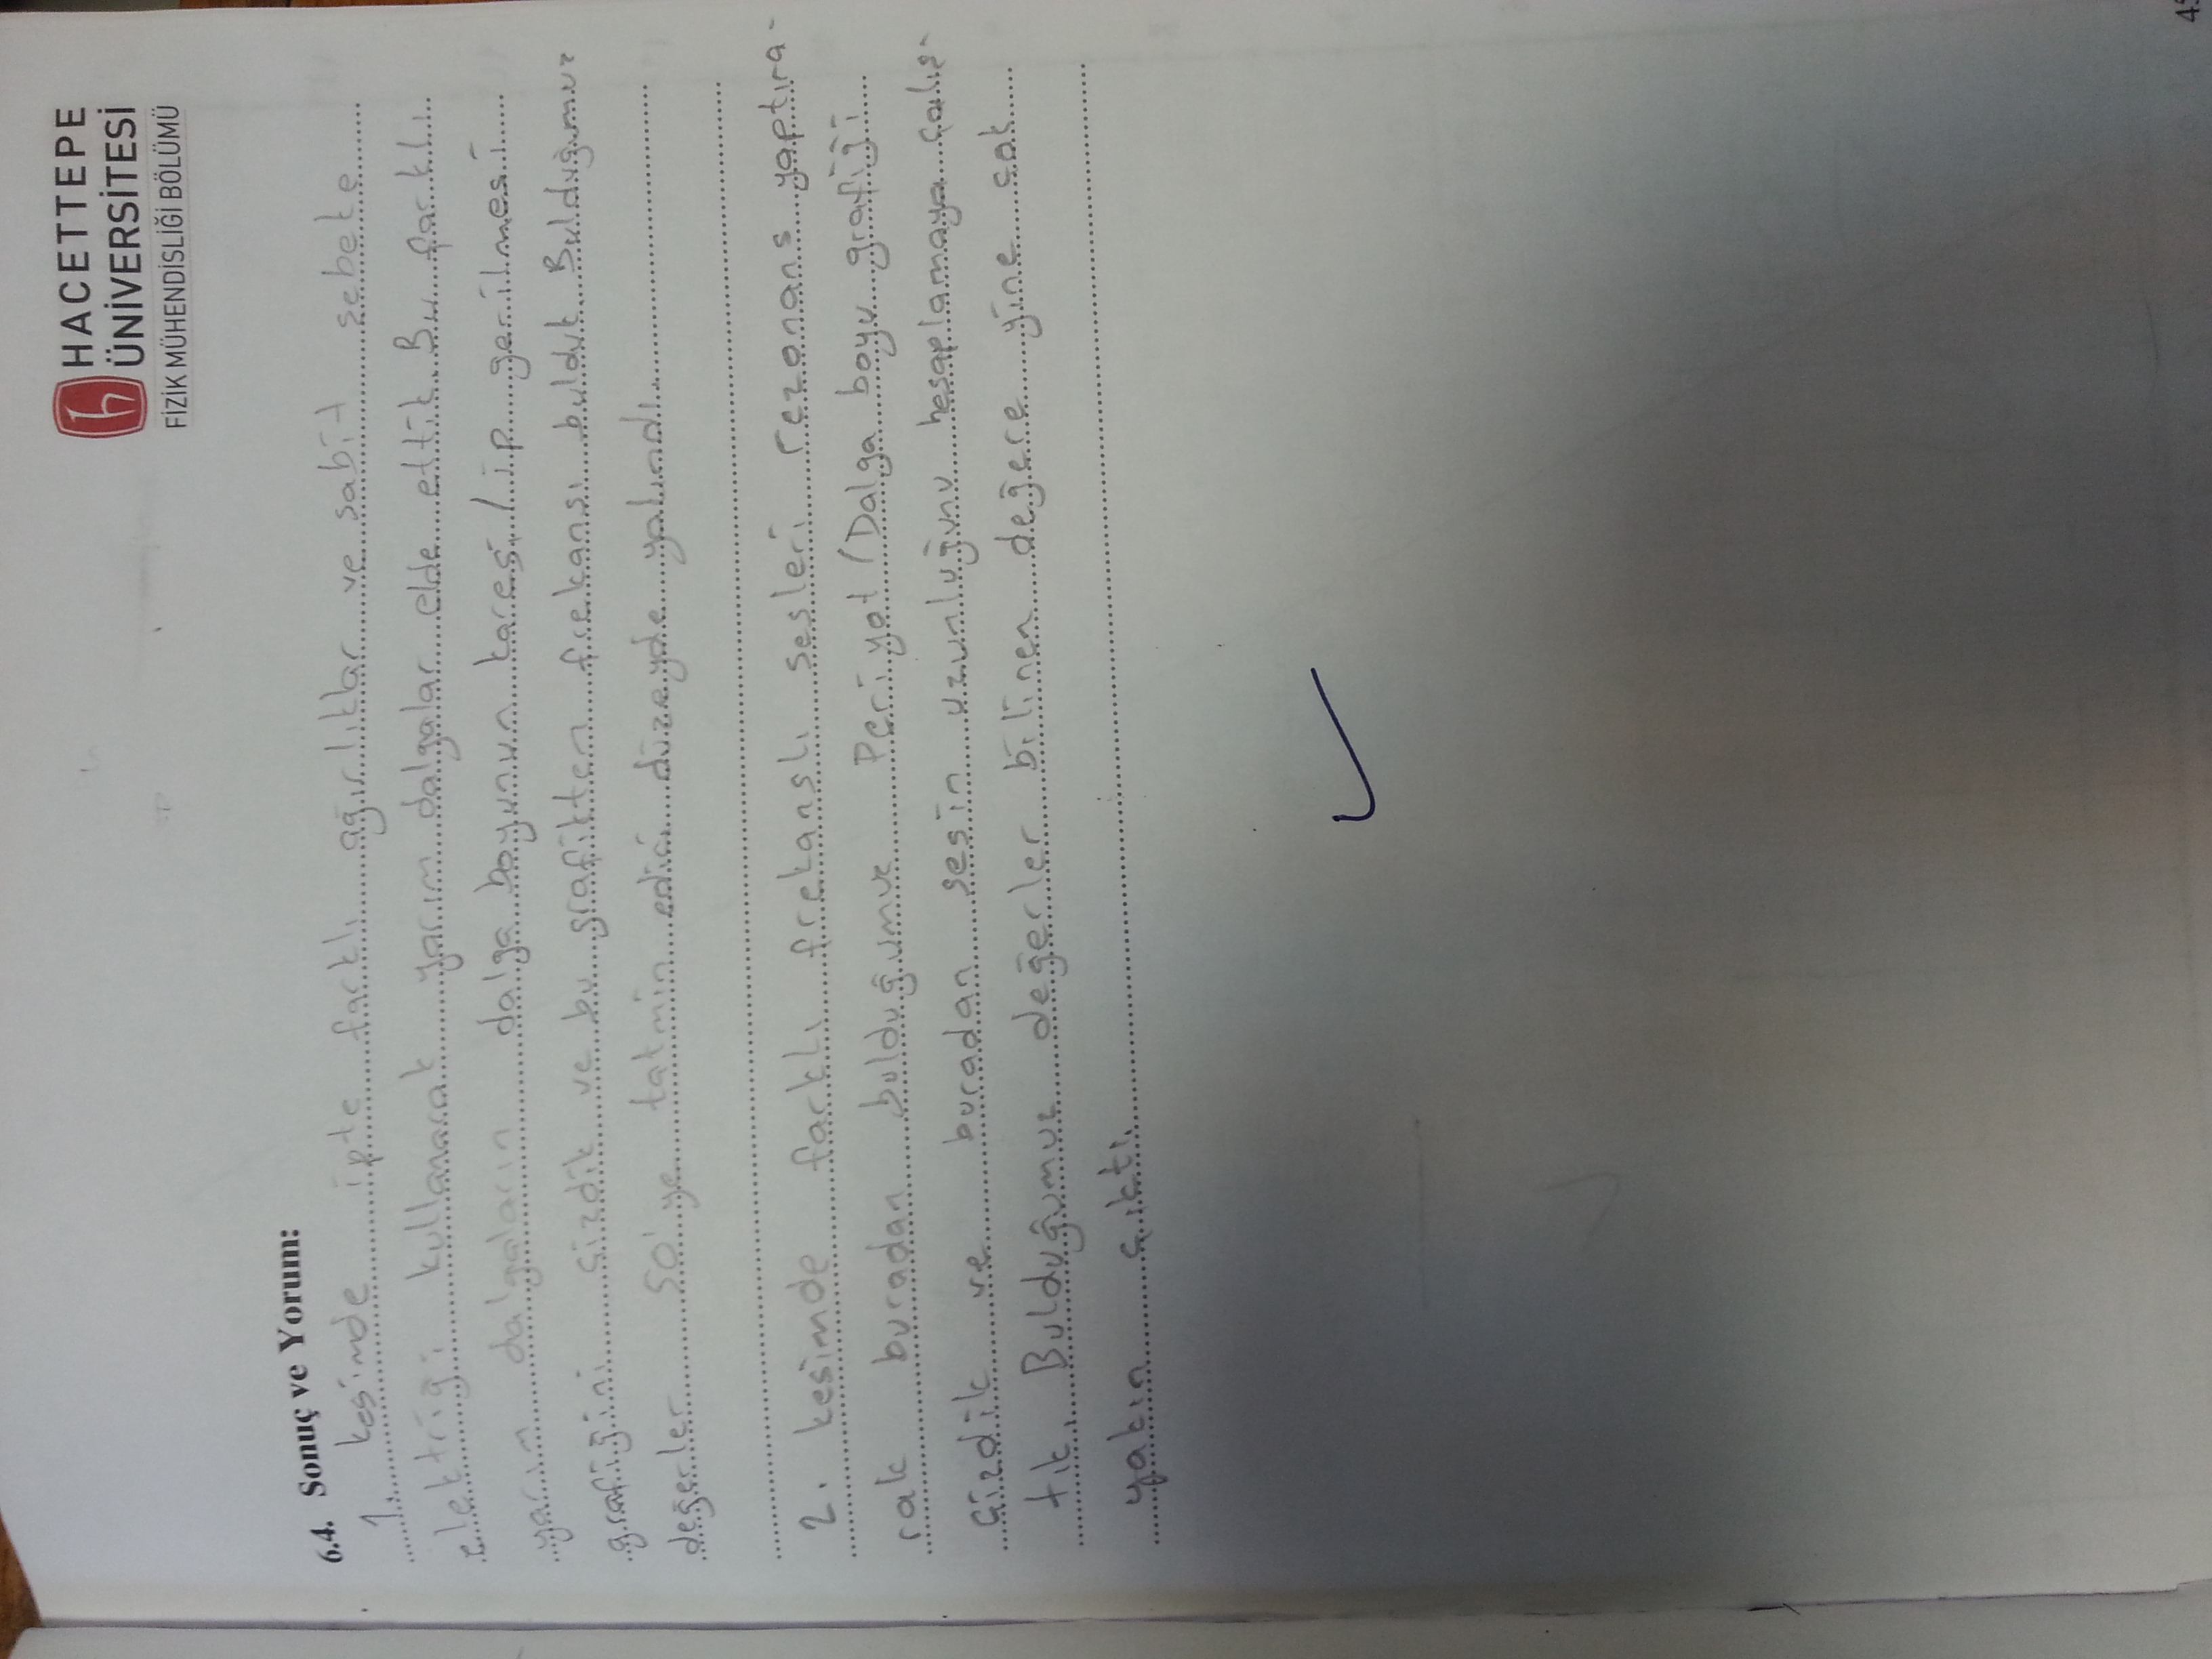 HACETTEPE
ÜNİVERSİTESİ
FİZİK MÜHENDİSLİĞİ BÖLÜMÜ
6.4. Sonuç ve Yorum:
1. kesimde ipte farklı ağırlıklar ve sabit sebeke
elektriği kullanarak yarım dalgalar elde ettik. Bu farklı
yarım dalgaların dalga boyunun karesi / ip gerilmesi
grafiğini çizdik ve bu grafikten frekansı bulduk. Bulduğumuz
değerler 50'ye tatmin edici düzeyde yakındı.
2. kesimde farklı frekanslı sesleri rezonans yaptıra-
rak buradan bulduğumuz Periyot / Dalga boyu grafiği
çizdik ve buradan sesin uzunluğunu hesaplamaya çalış-
tık. Bulduğumuz değerler bilinen değere yine çok
yakın çıktı.